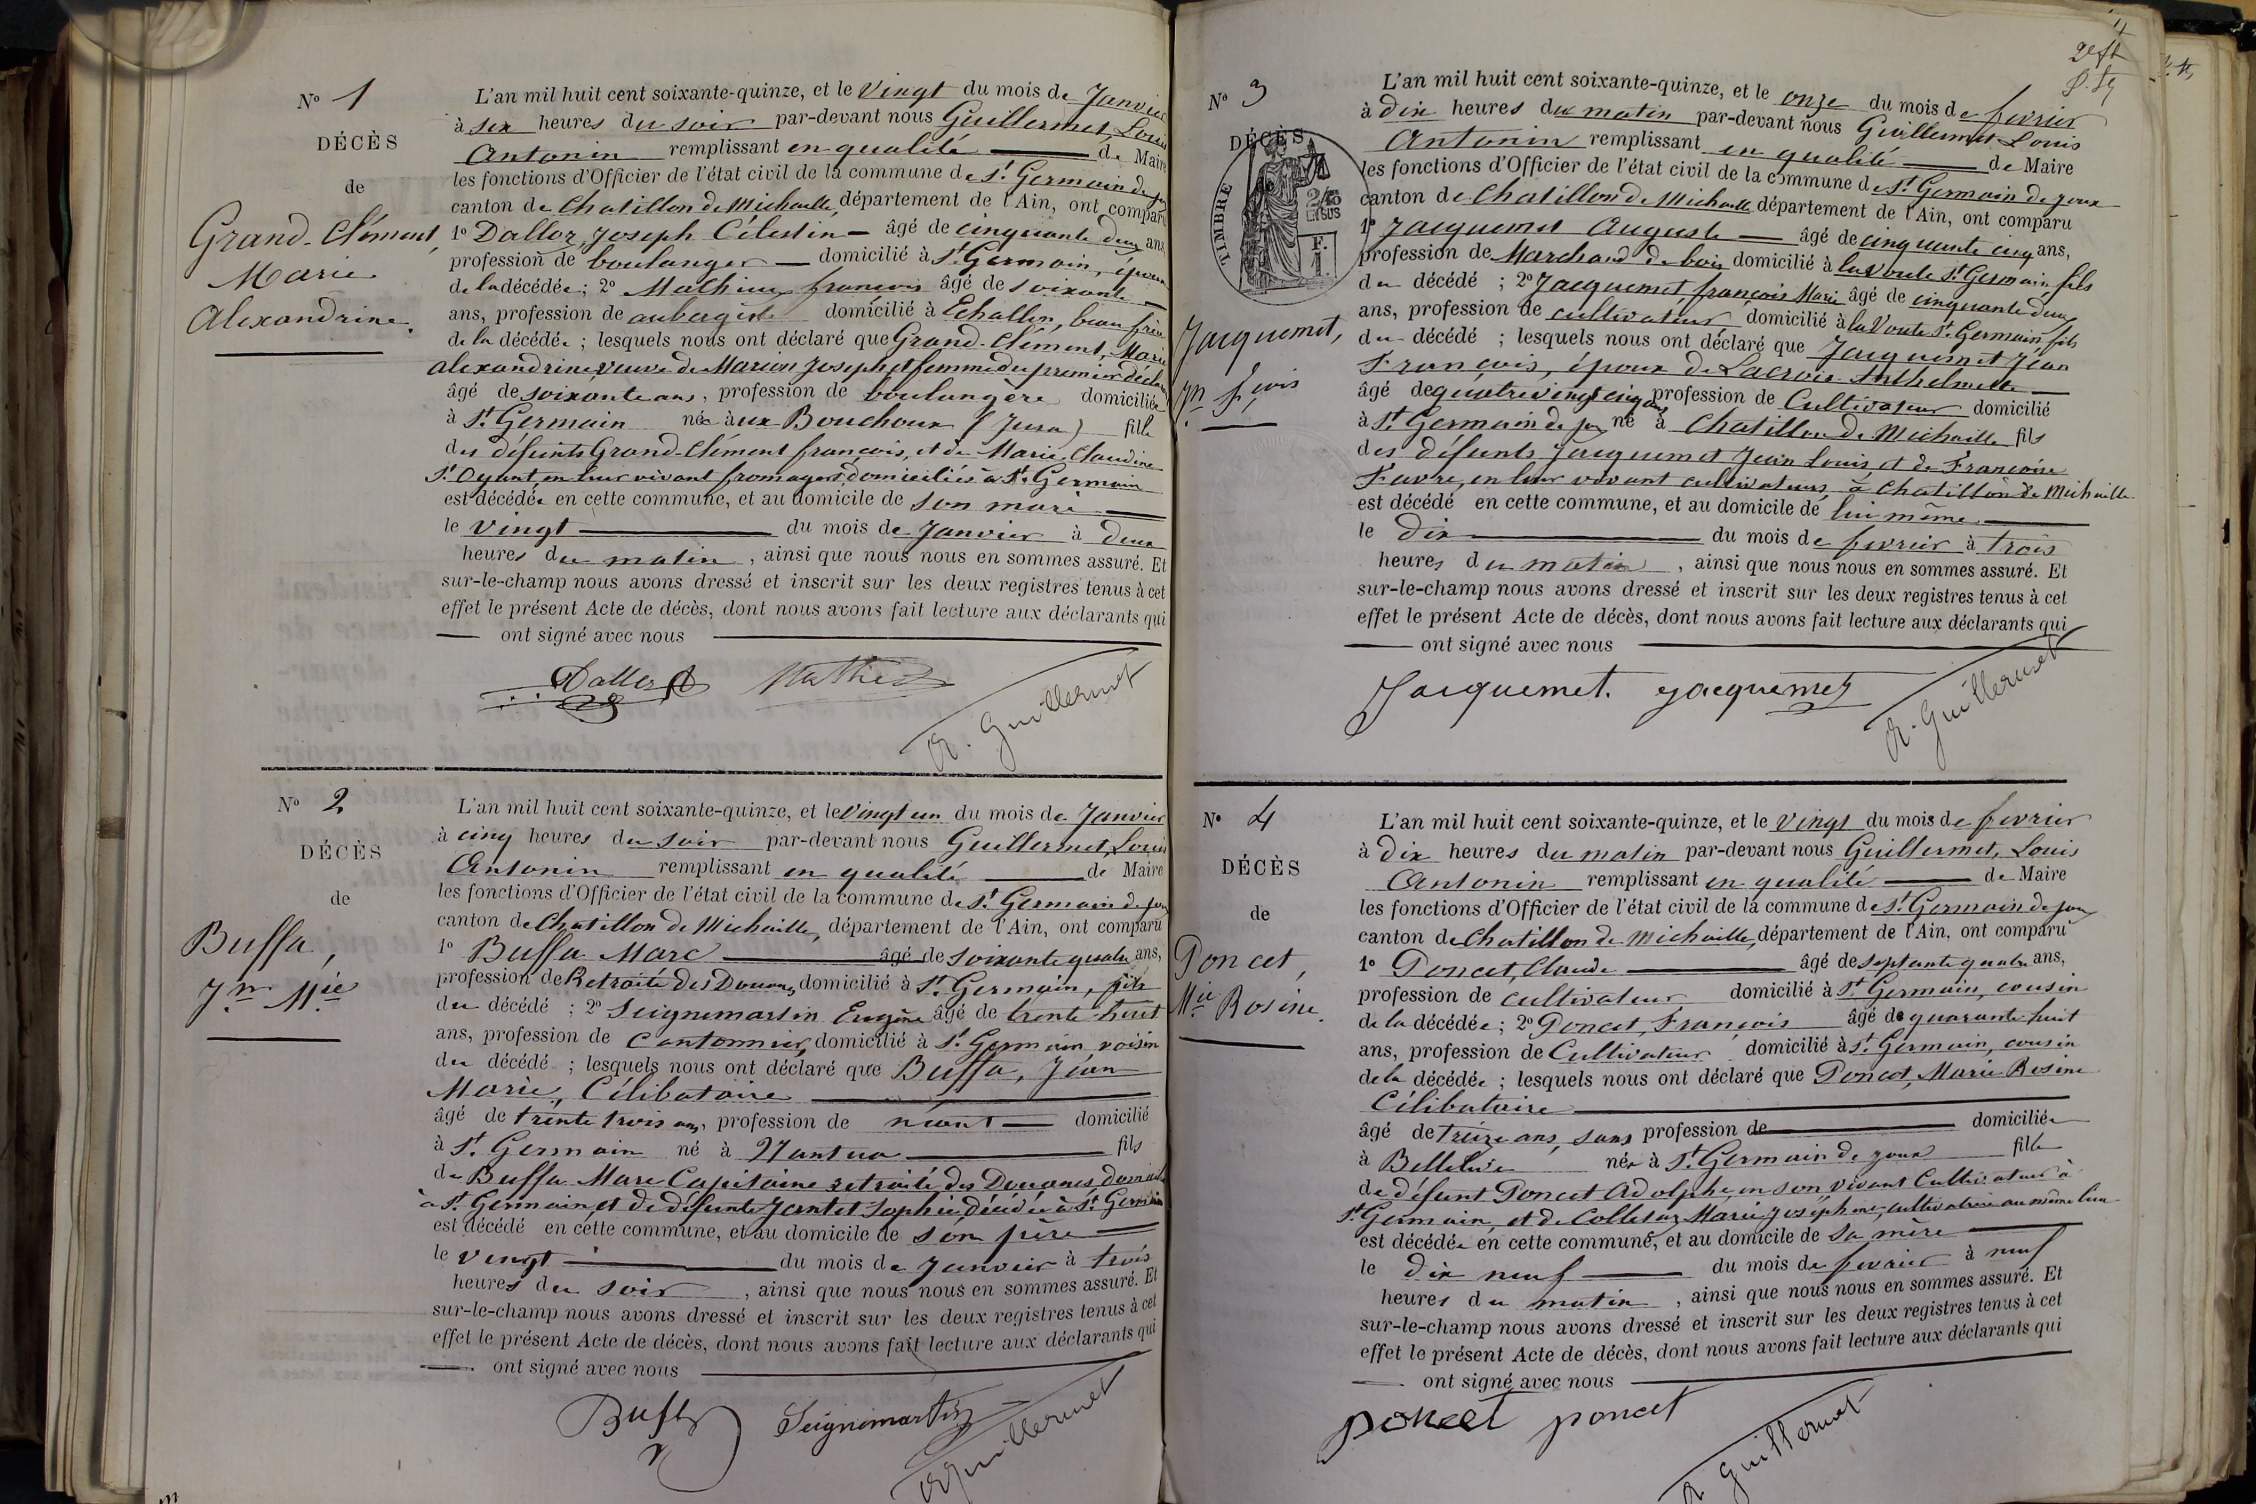 N° 1
DÉCÈS
de
Grand-Clément,
Marie
Alexandrine.
L'an mil huit cent soixante-quinze, et le Vingt du mois de Janvier
à six heures du soir par-devant nous Guillermet, Louis
Antonin remplissant en qualité de Maire
les fonctions d'Officier de l'état civil de la commune de St Germain de joux
canton de Chatillon de Michaille, département de l'Ain, ont comparu
1° Dalloz, Joseph Célestin âgé de cinquante deux ans,
profession de boulanger domicilié à St Germain, époux
de la décédée ; 2° Mathieu françois âgé de soixante
ans, profession de aubergiste domicilié à Echallon, beau frère
de la décédée ; lesquels nous ont déclaré que Grand-Clément, Marie
alexandrine veuve de Marion Joseph et femme du premier déclarant
âgé de soixante ans, profession de boulangère domiciliée
à St Germain née aux Bouchoux (Jura) fille
des défunts Grand-Clément françois, et de Marie Claudine
St Oyant en leur vivant fromagers domiciliés à St Germain
est décédée en cette commune, et au domicile de son mari
le vingt du mois de Janvier à deux
heures du matin, ainsi que nous nous en sommes assuré. Et
sur-le-champ nous avons dressé et inscrit sur les deux registres tenus à cet
effet le présent Acte de décès, dont nous avons fait lecture aux déclarants qui
ont signé avec nous
Dalloz Mathieu A. Guillermet
N° 2
DÉCÈS
de
Buffa,
Jn Mie
L'an mil huit cent soixante-quinze, et le Vingt un du mois de Janvier
à cinq heures du soir par-devant nous Guillermet, Louis
Antonin remplissant en qualité de Maire
les fonctions d'Officier de l'état civil de la commune de St Germain de joux
canton de Chatillon de Michaille, département de l'Ain, ont comparu
1° Buffa Marc âgé de soixante quatre ans,
profession de Retraité des Douanes domicilié à St Germain, père
du décédé ; 2° Seignemartin Eugène âgé de trente huit
ans, profession de Cantonnier, domicilié à St Germain voisin
du décédé ; lesquels nous ont déclaré que Buffa, Jean
Marie, Célibataire
âgé de trente trois ans, profession de néant domicilié
à St Germain né à Nantua fils
de Buffa Marc Capitaine retraité des Douanes, domicilié
à St Germain et de défunte Jantet Sophie, décédée à St Germain
est décédé en cette commune, et au domicile de son père
le vingt du mois de Janvier à trois
heures du soir, ainsi que nous nous en sommes assuré. Et
sur-le-champ nous avons dressé et inscrit sur les deux registres tenus à cet
effet le présent Acte de décès, dont nous avons fait lecture aux déclarants qui
ont signé avec nous
Buffa Seignemartin A. Guillermet
N° 3
DÉCÈS
TIMBRE
Jacquemet,
Jn fçois
L'an mil huit cent soixante-quinze, et le onze du mois de fevrier
à dix heures du matin par-devant nous Guillermet Louis
Antonin remplissant en qualité de Maire
les fonctions d'Officier de l'état civil de la commune de St Germain de joux
canton de Chatillon de Michaille département de l'Ain, ont comparu
1° Jacquemet Auguste âgé de cinquante cinq ans,
profession de Marchand de bois domicilié à la voute St Germain, fils
du décédé ; 2° Jacquemet, françois Marie âgé de cinquante deux
ans, profession de cultivateur domicilié à la Voute St Germain fils
du décédé ; lesquels nous ont déclaré que Jacquemet Jean
François, époux de Lacroix Anthelmette
âgé de quatre vingt cinq ans profession de Cultivateur domicilié
à St Germain de joux né à Chatillon de Michaille fils
des défunts Jacquemet Jean Louis et de Françoise
Favre, en leur vivant cultivateurs à Chatillon de Michaille
est décédé en cette commune, et au domicile de lui même
le dix du mois de fevrier à trois
heures du matin, ainsi que nous nous en sommes assuré. Et
sur-le-champ nous avons dressé et inscrit sur les deux registres tenus à cet
effet le présent Acte de décès, dont nous avons fait lecture aux déclarants qui
ont signé avec nous
Jacquemet. Jacquemet A. Guillermet
N° 4
DÉCÈS
de
Poncet,
Mie Rosine.
L'an mil huit cent soixante-quinze, et le vingt du mois de fevrier
à dix heures du matin par-devant nous Guillermet, Louis
Antonin remplissant en qualité de Maire
les fonctions d'Officier de l'état civil de la commune de St Germain de joux
canton de Chatillon de Michaille, département de l'Ain, ont comparu
1° Poncet, Claude âgé de septante quatre ans,
profession de cultivateur domicilié à St Germain, cousin
de la décédée ; 2° Poncet, François âgé de quarante huit
ans, profession de Cultivateur domicilié à St Germain, cousin
de la décédée ; lesquels nous ont déclaré que Poncet, Marie Rosine
Célibataire
âgé de treize ans, sans profession de domiciliée
à née à St Germain de joux fille
de défunt Poncet Adolphe, en son vivant Cultivateur à
St Germain, et de Colletaz Marie Joséphine, cultivatrice au même lieu
est décédée en cette commune, et au domicile de sa mère
le dix neuf du mois de fevrier à neuf
heures du matin, ainsi que nous nous en sommes assuré. Et
sur-le-champ nous avons dressé et inscrit sur les deux registres tenus à cet
effet le présent Acte de décès, dont nous avons fait lecture aux déclarants qui
ont signé avec nous
Poncet poncet A. Guillermet